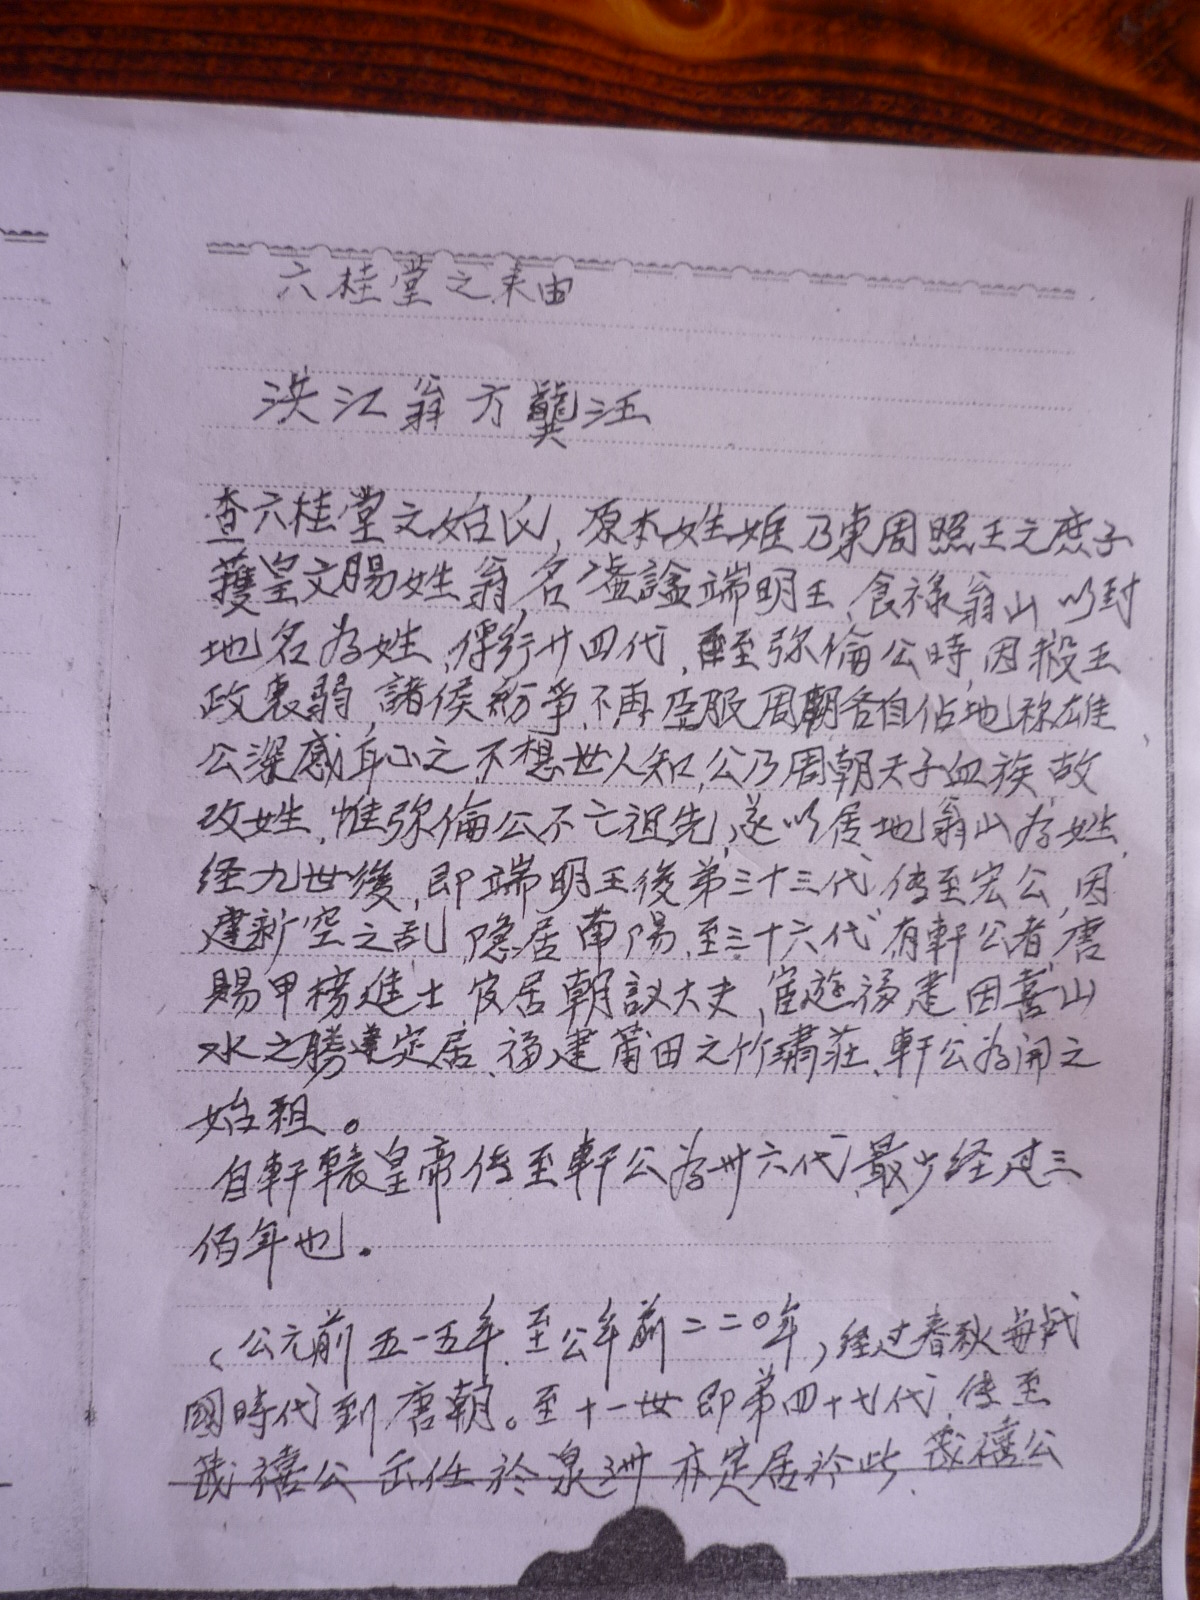 六桂堂之来由
洪江翁方龔汪
查六桂堂文姓氏,原本姓姬乃東周照王之庶子
獲皇文賜姓翁,名溢諡端明王,食禄翁山,以封
地名為姓,傳衍廿四代,至弥倫公時,因殺王
政衰弱,諸侯紛爭,不再臣服周朝各自佔地称雄
公深感耳心之,不想世人知,公乃周朝天子血族,故
改姓,惟弥倫公不亡祖先,遂以居地翁山為姓,
经九世後,即端明王後第三十三代,传至宏公,因
建新空之乱,隐居南陽,至三十六代,有軒公者,唐
賜甲榜進士,官居朝議大夫,宦遊福建因喜山
水之勝遂定居,福建莆田之竹嘯莊,軒公為開之
始祖。
自軒轅皇帝传至軒公為卅六代,最少经过三
佰年也.
(公元前五一五年,至公年前二二〇年,)经过春秋每战
國時代到唐朝。至十一世即第四十七代,传至
茂禧公 任於泉洲 亦定居於此,茂禧公